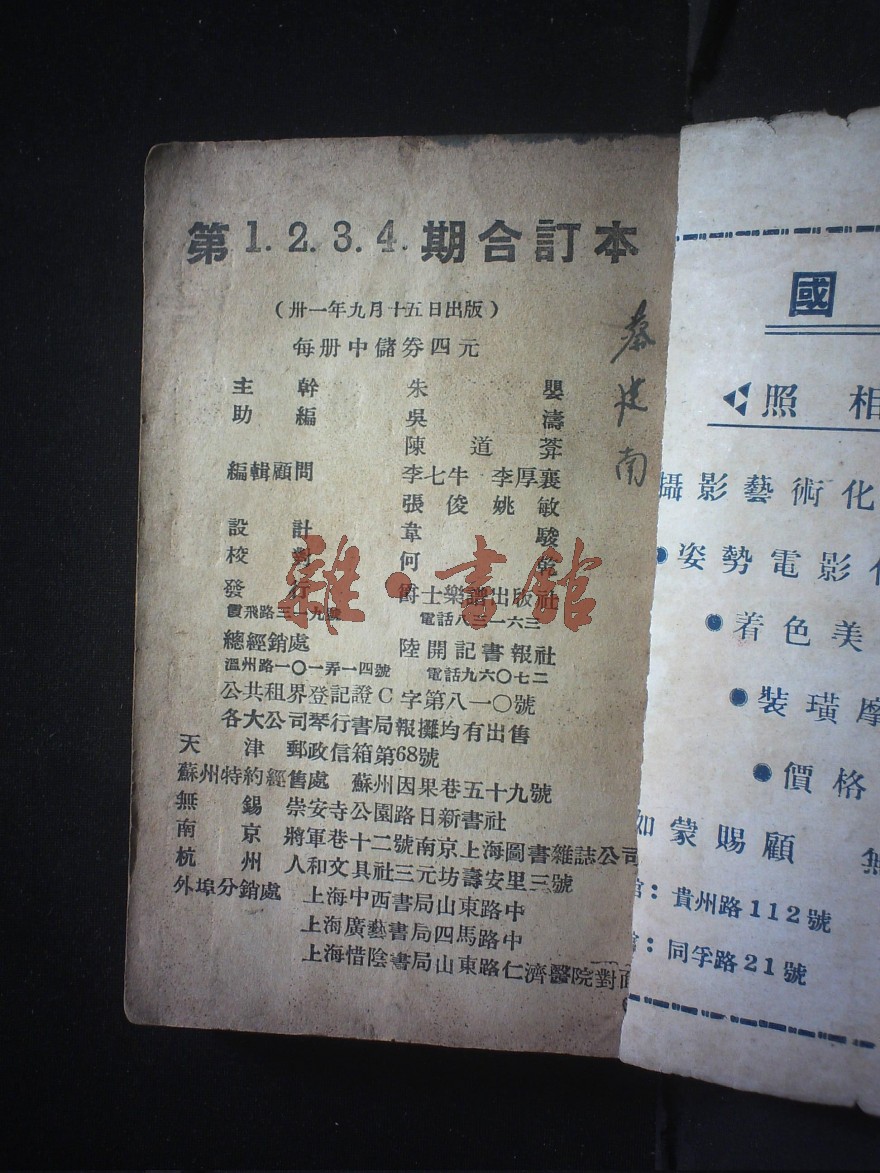 第1.2.3.4.期合訂本
（卅一年九月十五日出版）
每册中儲券四元
主幹 朱嬰
助編 吳濤
陳道
編輯顧問 李七牛 李厚襄
張俊 姚敏
設計 韋駿
校對 何
發行 爵士樂譜出版社
霞飛路三一九號 電話八三一六三
總經銷處 陸開記書報社
溫州路一〇一弄一四號 電話九六〇七二
公共租界登記證C字第八一〇號
各大公司琴行書局報攤均有出售
天津 郵政信箱第68號
蘇州特約經售處 蘇州因果巷五十九號
無錫 崇安寺公園路日新書社
南京 將軍巷十二號南京上海圖書雜誌公司
杭州 人和文具社三元坊壽安里三號
外埠分銷處 上海中西書局山東路中
上海廣藝書局四馬路中
上海惜陰書局山東路仁濟醫院對面
秦建南
雜·書館
國
照相
攝影藝術化
姿勢電影
着色美
裝璜摩
價格
如蒙賜顧 無
：貴州路112號
：同孚路21號